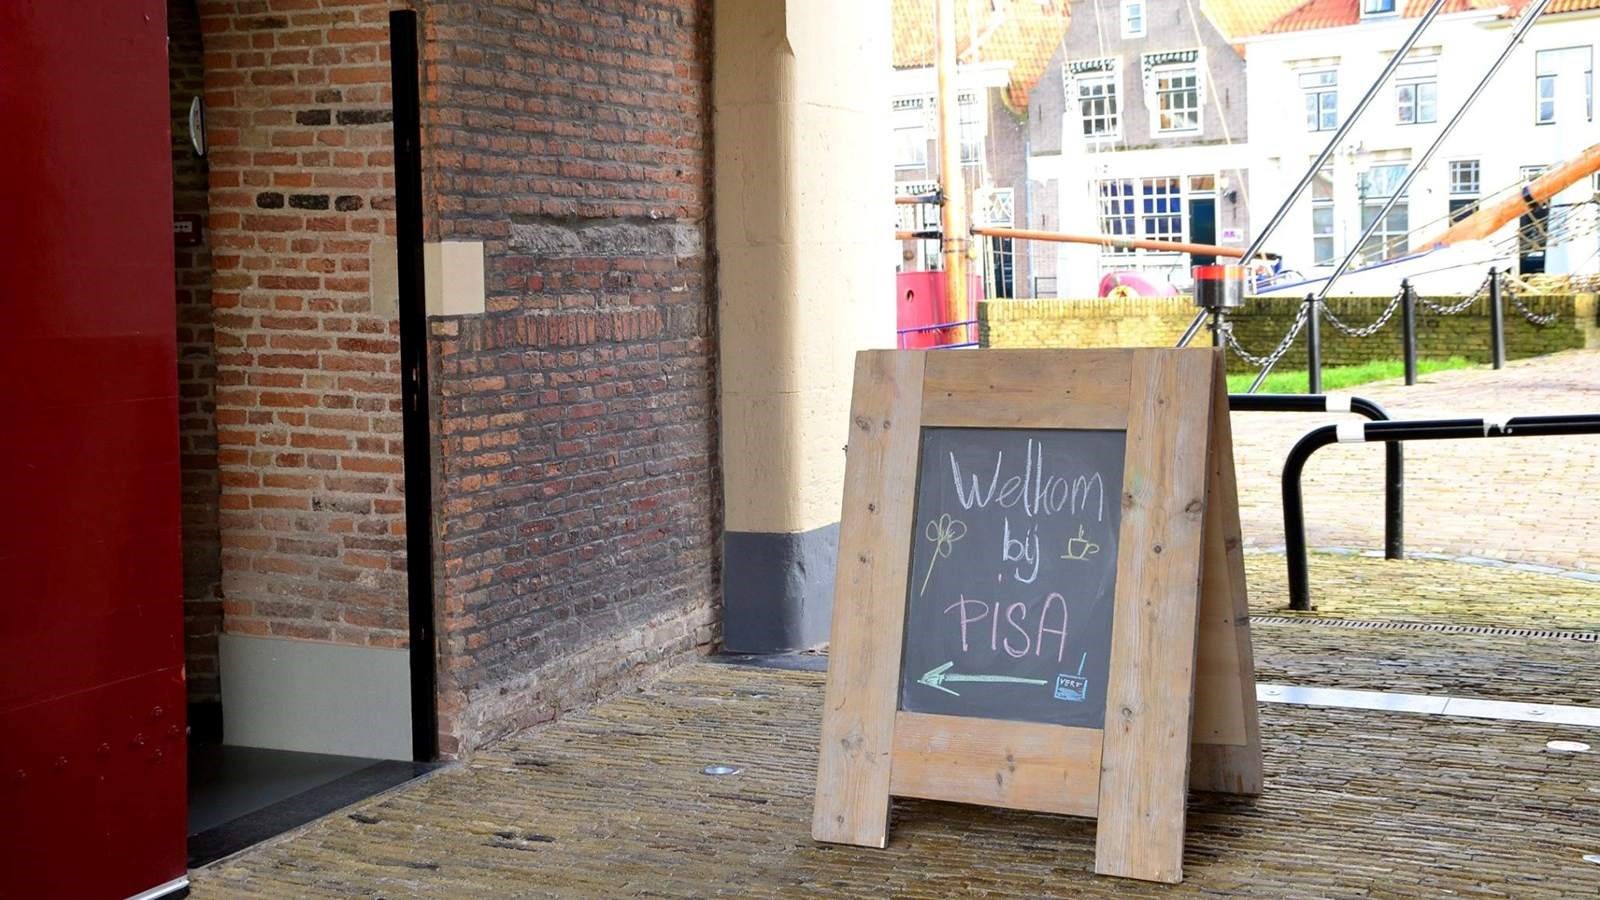 Welkom
bij
PISA
VERF